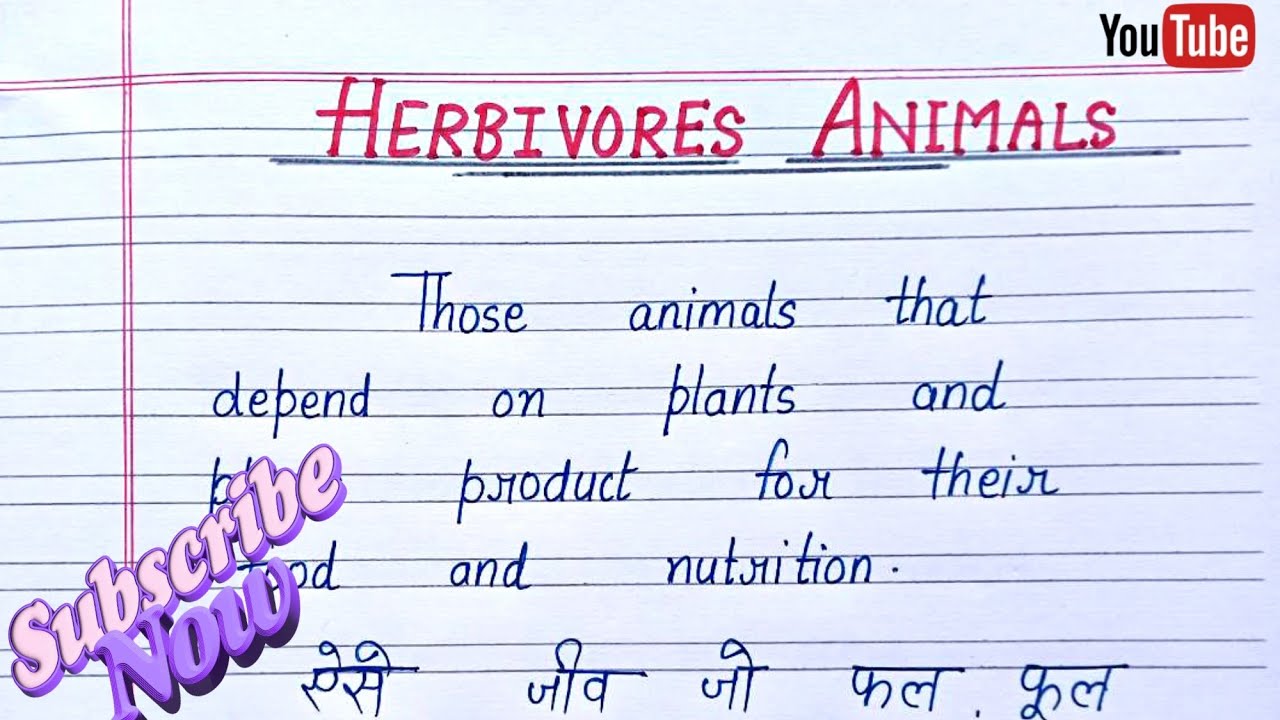 YouTube
HERBIVORES ANIMALS
Those animals that
depend on plants and
product for their
and nutrition.
Subscribe
Now
ऐसे जीव जो फल, फूल